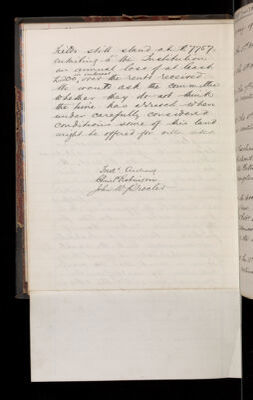 Fields still stand at £7757.
entailing to the Institution
an annual loss of at least
in interest
£200, over the rents received
He wants ask the committee
whether they do not think
the time has arrived when
under carefully considered
conditions some of this land
might be offered for
John W. Procter